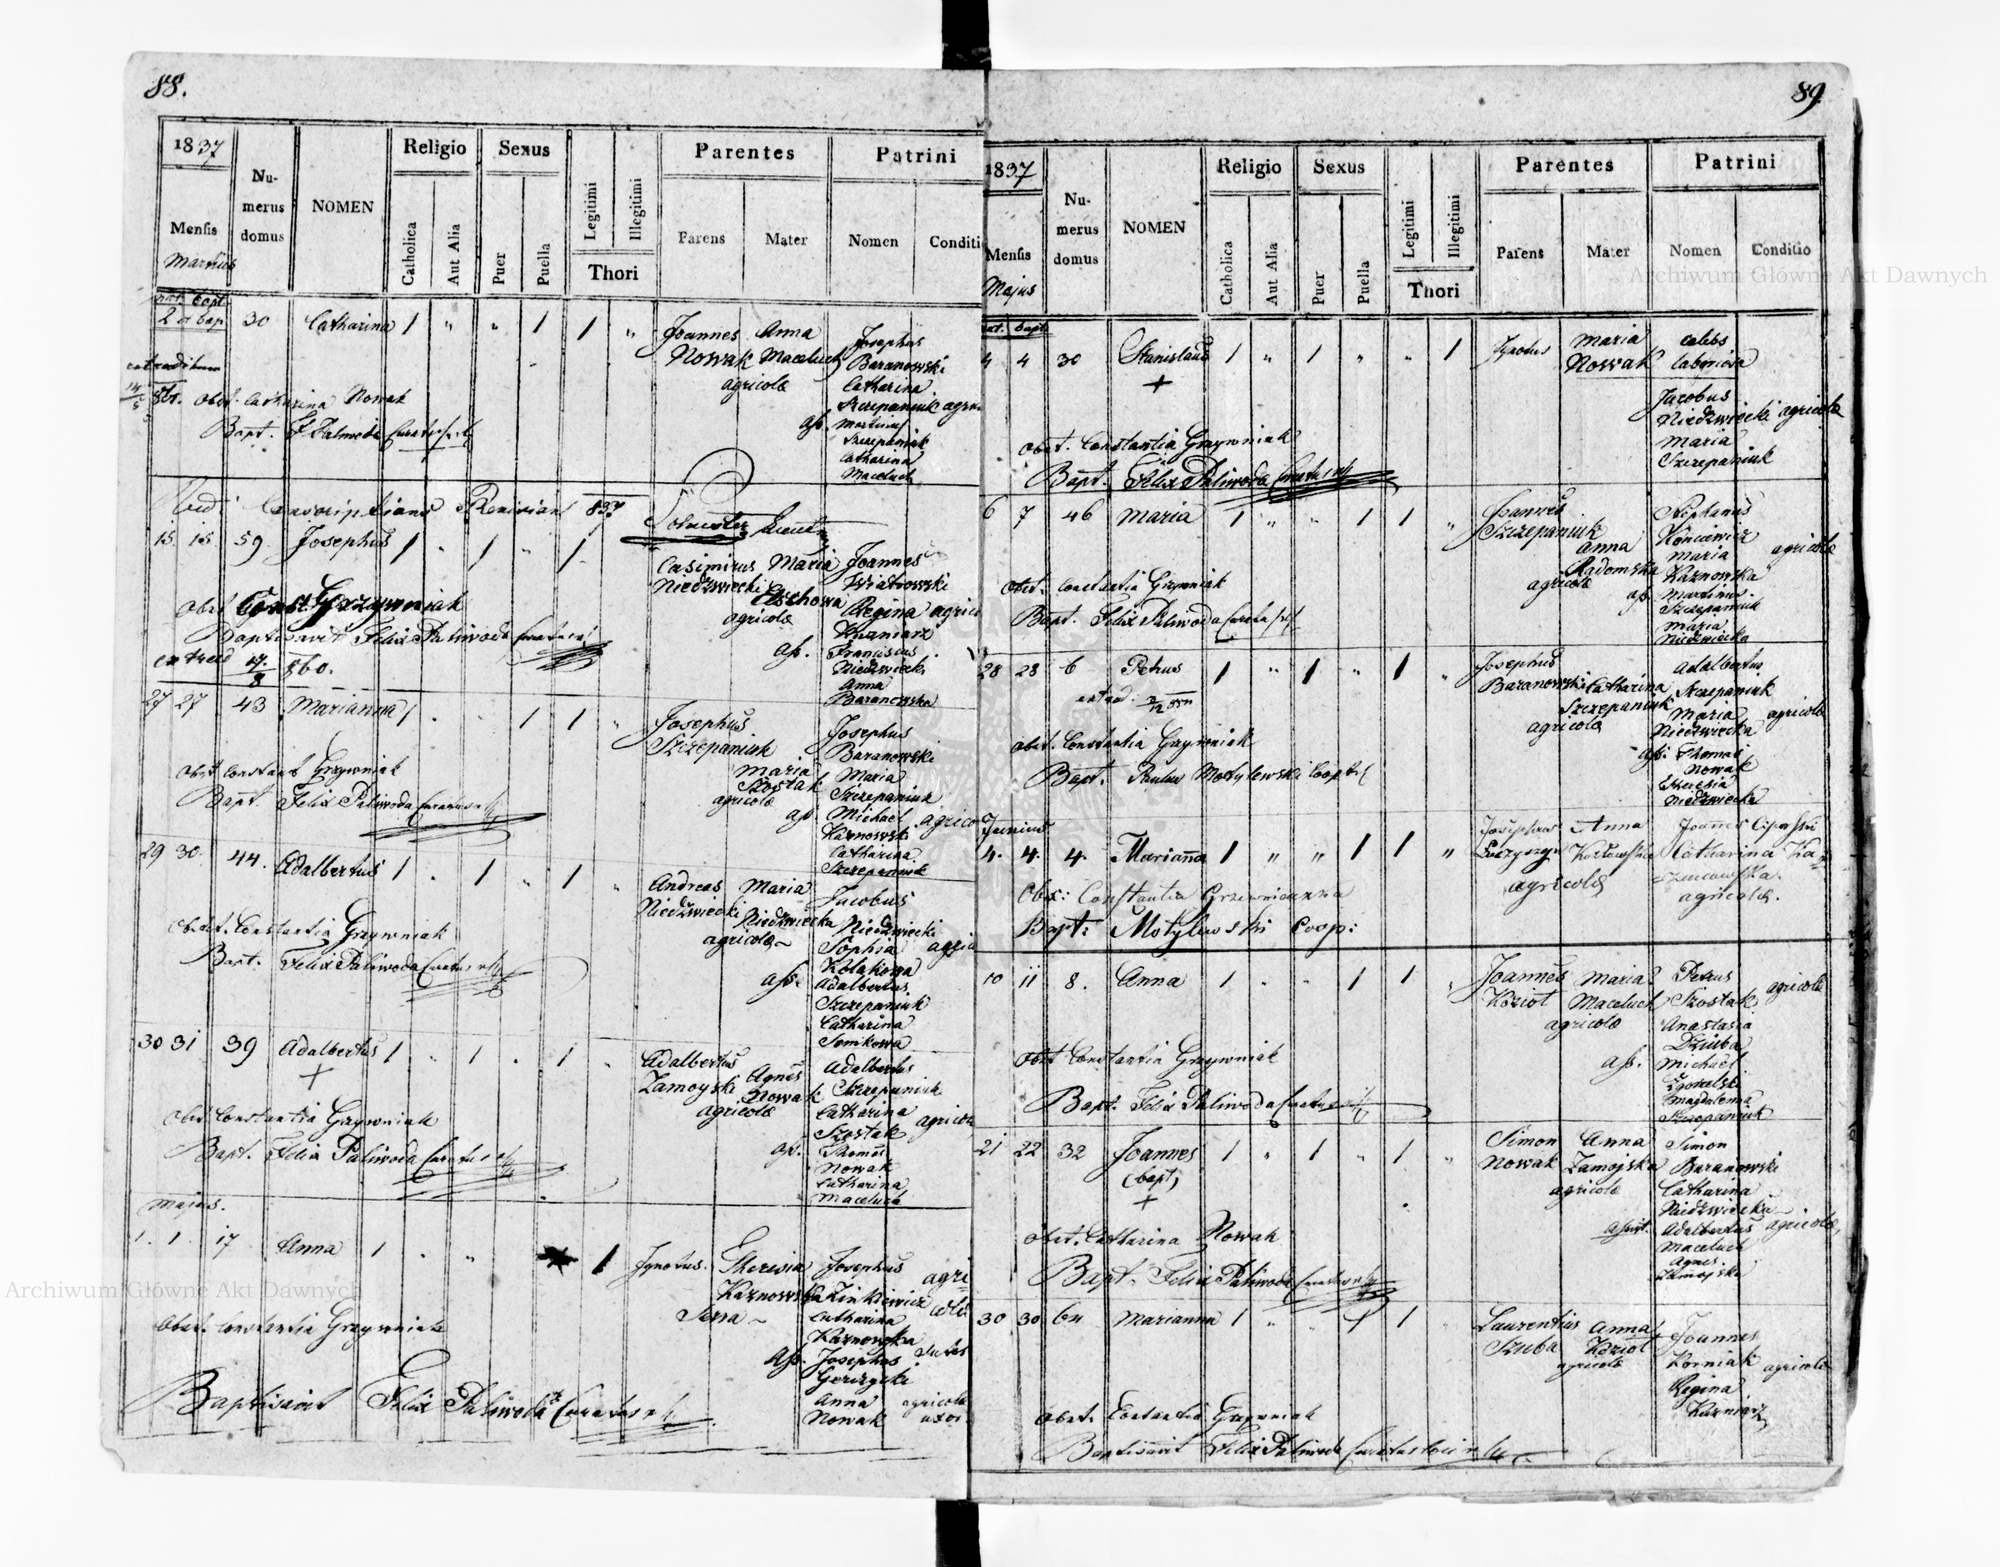 88.
1837
Mensis
Martius
Nu-
merus
domus
NOMEN
Religio
Catholica
Aut Alia
Sexus
Puer
Puella
Legitimi
Illegitimi
Thori
Parentes
Parens
Mater
Patrini
Nomen
Conditi
nat. bapt.
2 et bap. 30 Catharina 1 " " 1 1 "
Joannes Anna
Nowak Maceluch
agricolæ
Josephus
Baranowski
Catharina
Szczepaniuk
aſs. Martinus
Szczepaniuk
Catharina
Maceluch
Obst. Catharina Nowak
Bapt. F. Paliwoda Curatus
Conscriptionis 837
15 15 59. Josephus 1 " 1 " 1
Casimirus Maria
Niedzwiecki
agricolæ
Joannes
Wiatrowski
Regina
Kuzniarz
aſs. Franciscus
Niedzwiecki
Anna
Baranowska
Obst Const Grzywniak
Baptisavit Felix Paliwoda Curatus
extrad 17/8 860.
27 27 43 Marianna 1 " " 1 1 "
Josephus
Szczepaniuk
Maria
Szostak
agricolæ
Josephus
Baranowski
Maria
Szczepaniuk
aſs. Michael agrico
Kaznowski
Catharina
Szczepaniuk
Obst Constant Grzywniak
Bapt. Felix Paliwoda Curatus
29 30. 44. Adalbertus 1 " 1 " 1 "
Andreas Maria
Niedzwiecki Niedzwiecka
agricolæ
Jacobus
Niedzwiecki
Sophia
Kolakowa
aſs. Adalbertus
Szczepaniuk
Catharina
Obst. Constantia Grzywniak
Bapt. Felix Paliwoda Curatus
30 31 39 Adalbertus 1 " 1 " 1 "
+
Adalbertus Agnes
Zamoyski Nowak
agricolæ
Adalbertus
Szczepaniuk
Catharina
Szostak
aſs. Thomas
Nowak
Catharina
Maceluch
Obst Constantia Grzywniak
Bapt. Felix Paliwoda Curatus
Majus.
1. 1. 17 Anna 1 " " 1
Ignotus. Theresia
Kaznowska
Josephus
Zinkiewicz
Catharina
Kaznowska
aſs. Josephus
Gorzycki
Anna agricolæ
Nowak uxor
Obst. Constantia Grzywniak
Baptisavit Felix Paliwoda Curatus
89.
1837
Mensis
Majus
Nu-
merus
domus
NOMEN
Religio
Catholica
Aut Alia
Sexus
Puer
Puella
Legitimi
Illegitimi
Thori
Parentes
Parens
Mater
Patrini
Nomen
Conditio
nat. bapt
4 4 30 Stanislaus 1 " 1 " " 1
+
Ignotus Maria
Nowak
Jacobus
Niedzwiecki agricolæ
Maria
Szczepaniuk
Obst. Constantia Grzywniak
Bapt. Felix Paliwoda Curatus
6 7 46 Maria 1 " " 1 1 "
Joannes
Szczepaniuk
Anna
Radomska
agricolæ
Stephanus
Maria agricolæ
Kaznowska
aſs. Martinus
Szczepaniuk
Maria
Niedzwiecka
Obst. Constantia Grzywniak
Bapt. Felix Paliwoda Curatus
28 28 6 Petrus 1 " 1 " 1 "
Josephus
Baranowski Catharina
Szczepaniuk
agricolæ
Adalbertus
Szczepaniuk
Maria agricolæ
Niedzwiecka
aſs. Thomas
Nowak
Theresia
Niedzwiecka
Obst. Constantia Grzywniak
Bapt. Paulus Motylewski Coop
Junius
4. 4. 4. Marianna 1 " " 1 1 "
Josephus Anna
agricolæ
Joannes
Catharina
agricolæ.
Obst: Constantia
Bapt: Motylewski Coop:
10 11 8. Anna 1 " " 1 1 "
Joannes Maria
Kozioł Maceluch
agricolæ
Petrus agricolæ
Szostak
Anastasia
Dziuba
aſs. Michael
Magdalena
Szczepaniuk
Obst Constantia Grzywniak
Bapt. Felix Paliwoda Curatus
21 22 32 Joannes 1 " 1 " 1 "
(bapt)
+
Simon Anna
Nowak Zamojska
agricolæ
Simon
Baranowski
Catharina
Niedzwiecka
Adalbertus agricolæ
Maceluch
Agnes
Zamojska
Obst. Catharina Nowak
Bapt. Felix Paliwoda Curatus
30 30 64 Marianna 1 " " 1 1
Laurentius Anna
Szuba Kozioł
agricolæ
Joannes
Korniak agricolæ
Regina
Kuzniarz
Obst. Constantia Grzywniak
Baptisavit Felix Paliwoda Curatus
Archiwum Główne Akt Dawnych
Archiwum Główne Akt Dawnych